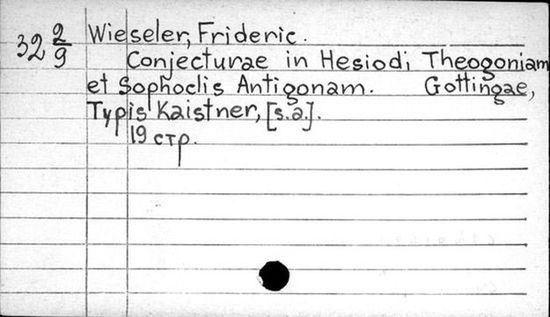 32 2/9 Wieseler, Frideric.
Conjecturae in Hesiodi Theogoniam
et Sophoclis Antigonam. Gottingae,
Typis Kaistner, [s.a.].
19 стр.